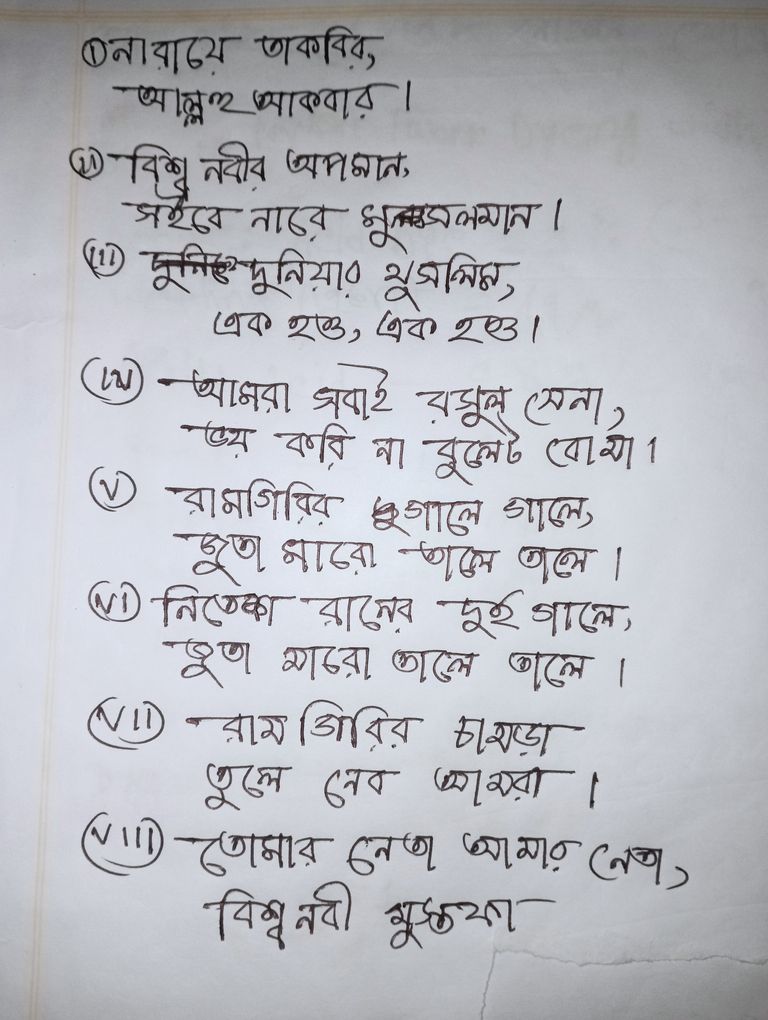 ① নারায়ে তাকবির,
আল্লাহু আকবার।
(ii) বিশ্ব নবীর অপমান,
সইবে নারে মুসলমান।
(iii) দুনিয়ার মুসলিম,
এক হও, এক হও।
(iv) আমরা সবাই রসুল সেনা,
ভয় করি না বুলেট বোমা।
(v) রামগিরির গালে গালে,
জুতা মারো তালে তালে।
(vi) রানের দুই গালে,
জুতা মারো তালে তালে।
(vii) রাম গিরির চামড়া
তুলে নেব আমরা।
(viii) তোমার নেতা আমার নেতা,
বিশ্ব নবী মুস্তফা